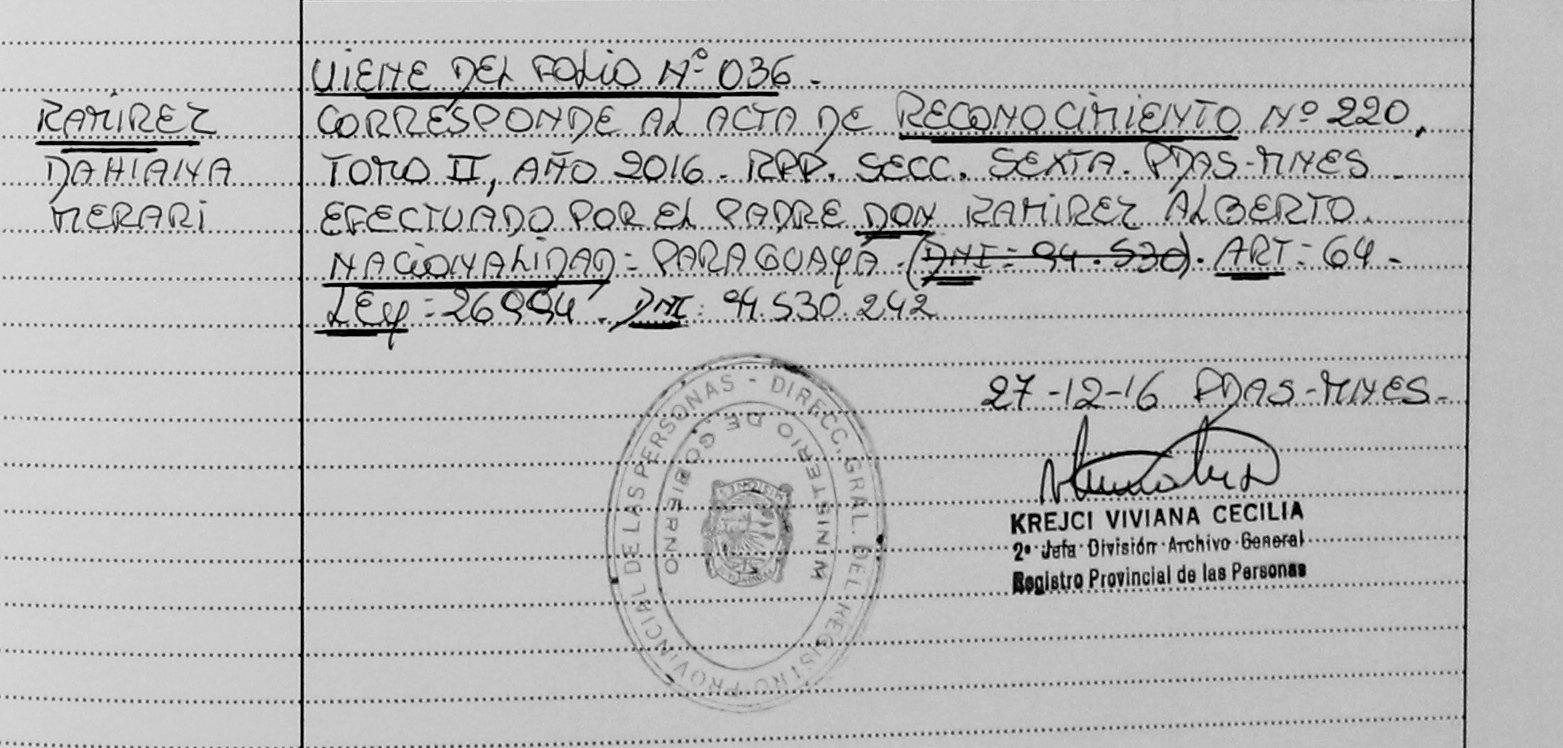 VIENE DEL FOLIO Nº 036.-
RAMÍREZ
DAHIANA
MERARÍ
CORRESPONDE AL ACTA DE RECONOCIMIENTO Nº 220,
TOMO II, AÑO 2016. RPP. SECC. SEXTA. PDAS-MNES
EFECTUADO POR EL PADRE DON RAMÍREZ ALBERTO.
NACIONALIDAD= PARAGUAYA. (DNI= 94.530). ART= 64.-
LEY= 26994. DNI: 94.530.242
27-12-16 PDAS-MNES.-
KREJCI VIVIANA CECILIA
2º Jefa División Archivo General
Registro Provincial de las Personas
DIRECC. GRAL. DEL REGISTRO PROVINCIAL DE LAS PERSONAS -
MINISTERIO DE GOBIERNO